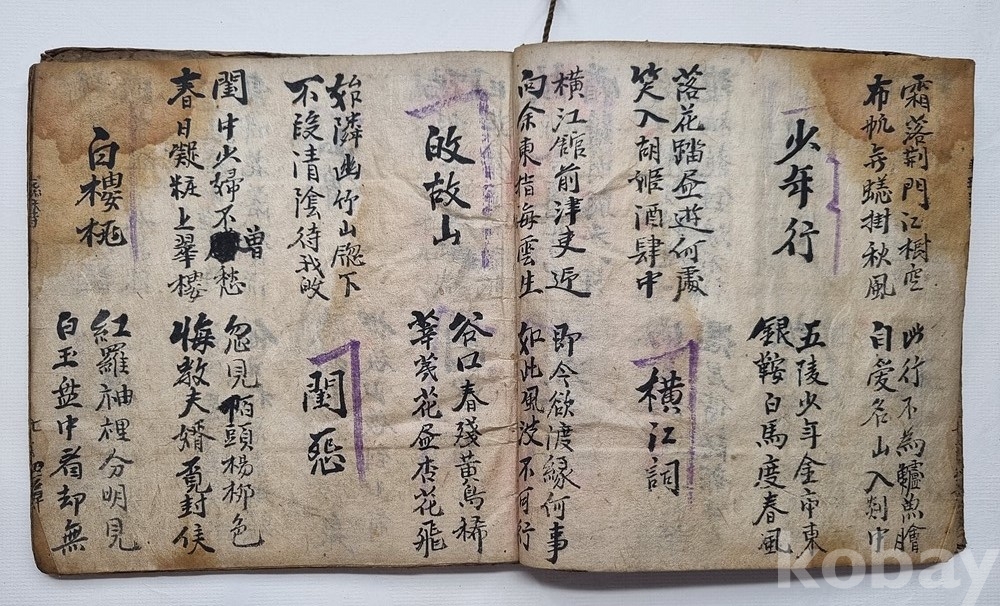 霜落荊門江樹空
布帆无蟻掛秋風
此行不為鱸魚膾
自愛名山入剡中
少年行
五陵少年金市東
銀鞍白馬度春風
落花踏昼遊何處
笑入胡姬酒肆中
橫江詞
橫江館前津吏迎
向余東指海雲生
即今欲渡緣何事
如此風波不可行
皈故山
谷口春殘黃鳥稀
莘荑花昼杏花飛
始隣幽竹山窓下
不改清陰待我皈
閨怨
閨中少婦不曾愁
春日凝粧上翠樓
忽見陌頭楊柳色
悔教夫婿覓封侯
白櫻桃
紅羅袖裡分明見
白玉盤中看却無
kobay